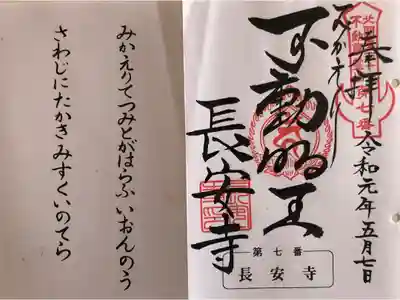 奉拝 令和元年五月七日
不動明王
長安寺
第七番
第七番
長安寺
みかえりてつみとがはらふ いおんのう
さわじにたかき みすくいのてら